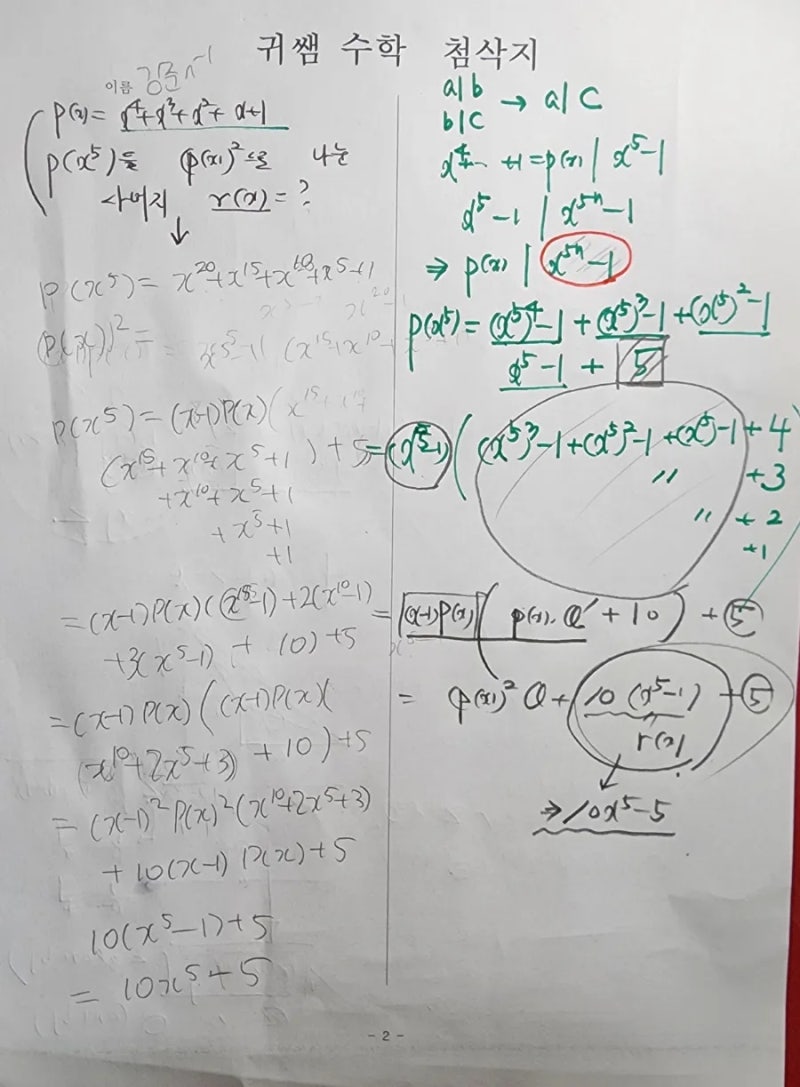 귀쌤 수학 첨삭지
이름
P(x) = x⁴+x³+x²+x+1
P(x⁵)를 (P(x))²으로 나눈
나머지 r(x) = ?
↓
P(x⁵) = x²⁰+x¹⁵+x¹⁰+x⁵+1
(P(x))² =
P(x⁵) = (x-1)P(x)(
(x¹⁵+x¹⁰+x⁵+1) + 5
+x¹⁰+x⁵+1
+x⁵+1
+1
= (x-1)P(x)((x¹⁵-1)+2(x¹⁰-1)
+3(x⁵-1) + 10)+5
= (x-1)P(x)((x-1)P(x)(
(x¹⁰+2x⁵+3) + 10)+5
= (x-1)²P(x)²(x¹⁰+2x⁵+3)
+10(x-1)P(x)+5
10(x⁵-1)+5
= 10x⁵+5
a|b
b|c
→ a|c
x⁴… +1=P(x) | x⁵-1
x⁵-1 | x⁵ⁿ-1
⇒ P(x) | x⁵ⁿ-1
P(x⁵) = (x⁵)⁴-1+(x⁵)³-1+(x⁵)²-1
x⁵-1 + 5
=(x⁵-1)((x⁵)³-1+(x⁵)²-1+(x⁵)-1+4
〃 +3
〃 +2
+1
= (x-1)P(x)(P(x)·Q′+10)+5
= (P(x))²Q+10(x⁵-1)+5
r(x)
⇒10x⁵-5
- 2 -